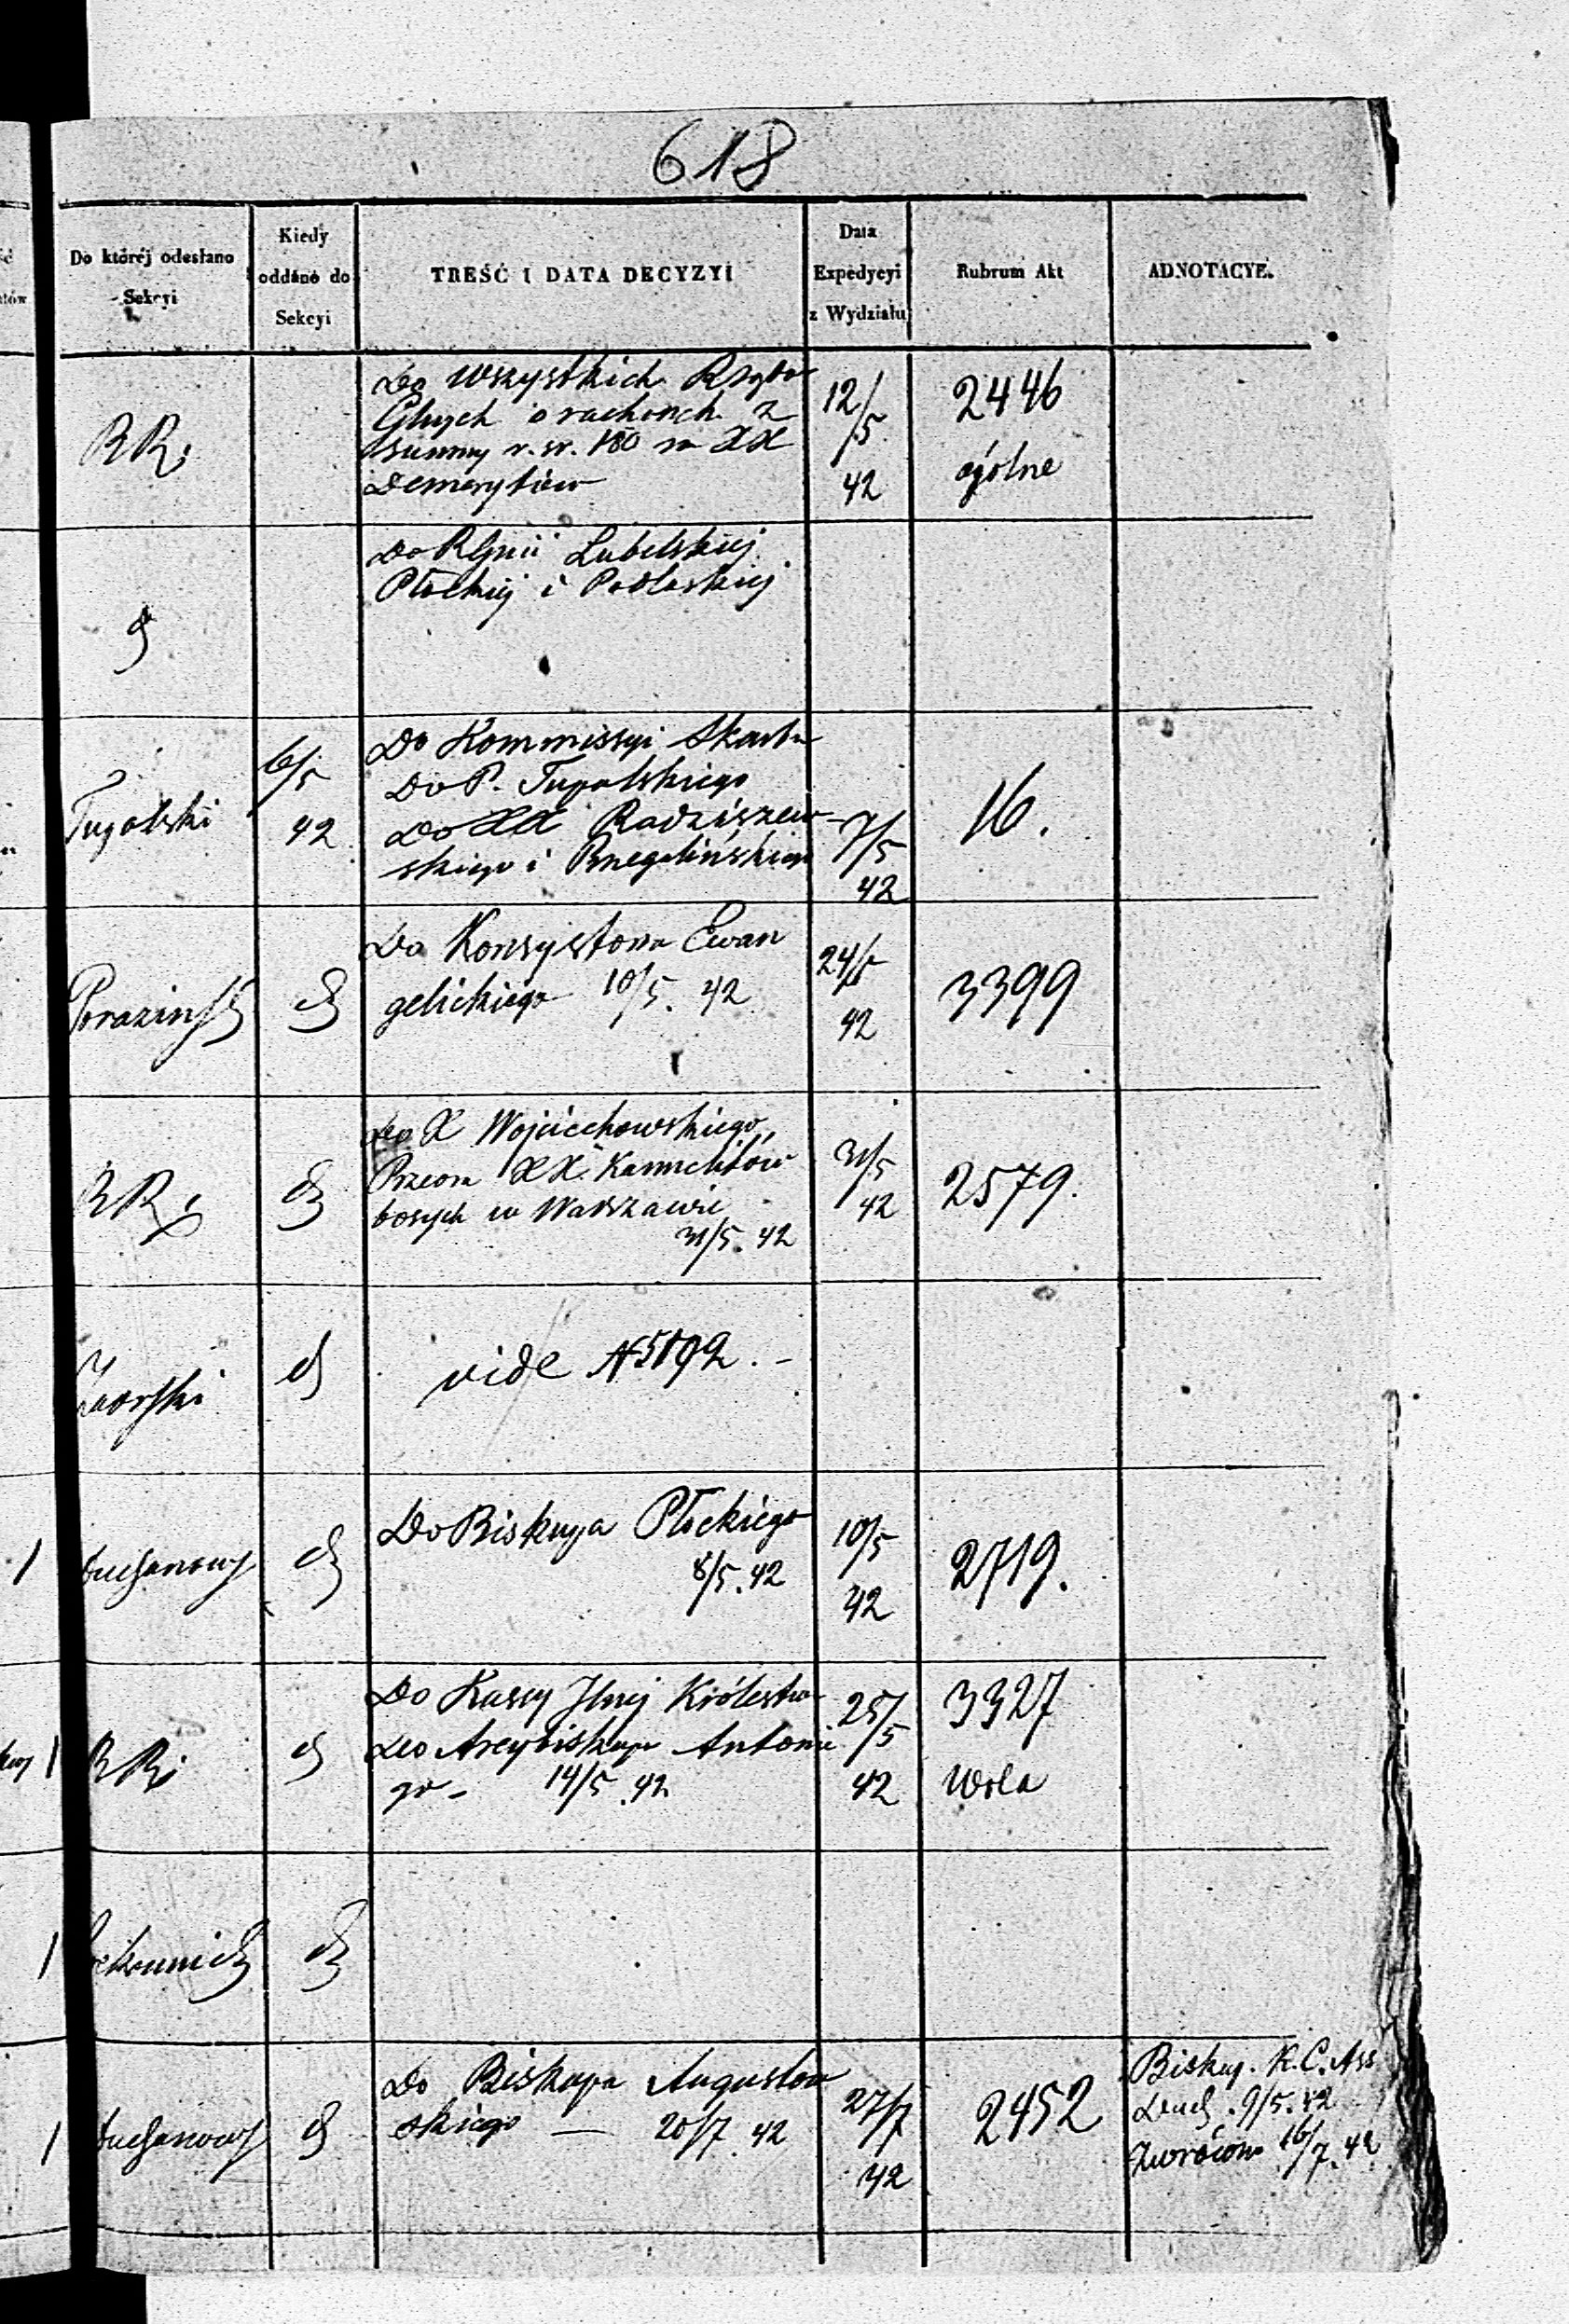 618
Do któréj odesłano Sekcyi
Kiedy oddano do Sekcyi
TREŚĆ I DATA DECYZYI
Data Expedycyi z Wydziału
Rubrum Akt
ADNOTACYE.
RR.
Do Wszystkich Rządów
Glnych o rachonch z
summy r. sr. 180 na XX
Demerytów
12/5
42
2446
ogólne
Do RGnii Lubelskiej
Płockiej i Podlaskiej
Tugalski
6/5
42
Do Kommissyi Skarbu
Do P. Tugalskiego
Do XX Radziszew-
skiego i
7/5
42
16.
Do Konsystorza Ewan
gelickiego 10/5. 42
24/5
42
3399
RR.
Do X Wojciechowskiego,
Przeora XX. Karmelitów
bosych w Warszawie
31/5. 42
31/5
42
2579.
vide N 5192. -
Do Biskupa Płockiego
8/5. 42
10/5
42
2719.
RR.
Do Kassy Głnej Królestwa
Do Arcybiskupa Antonie
go - 14/5. 42
25/5
42
3327
Wola
Do Biskupa Augustow
skiego — 20/7 42
27/7
42
2452
Biskup. K. C. Ass
Duch. 9/5. 42
Zwrócono 16/7. 42